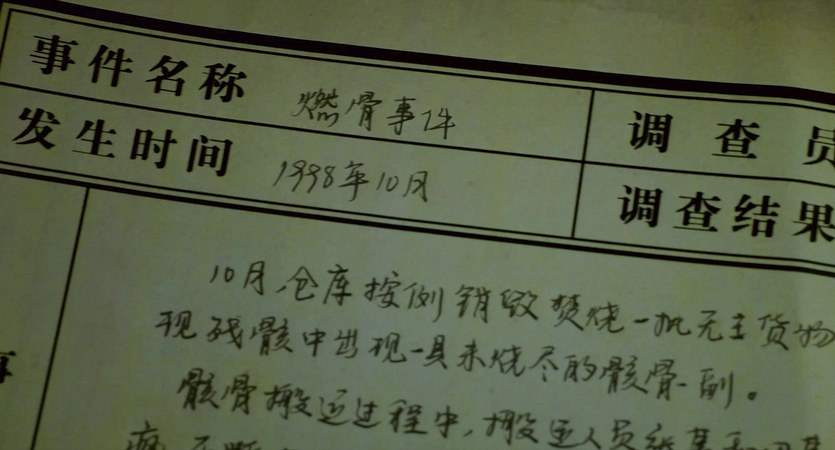 事件名称 燃骨事件 调查员
发生时间 1998年10月 调查结果
10月,仓库按例销毁焚烧一批无主货物
现残骸中出现一具未烧尽的骸骨一副。
骸骨搬运过程中,搬运人员